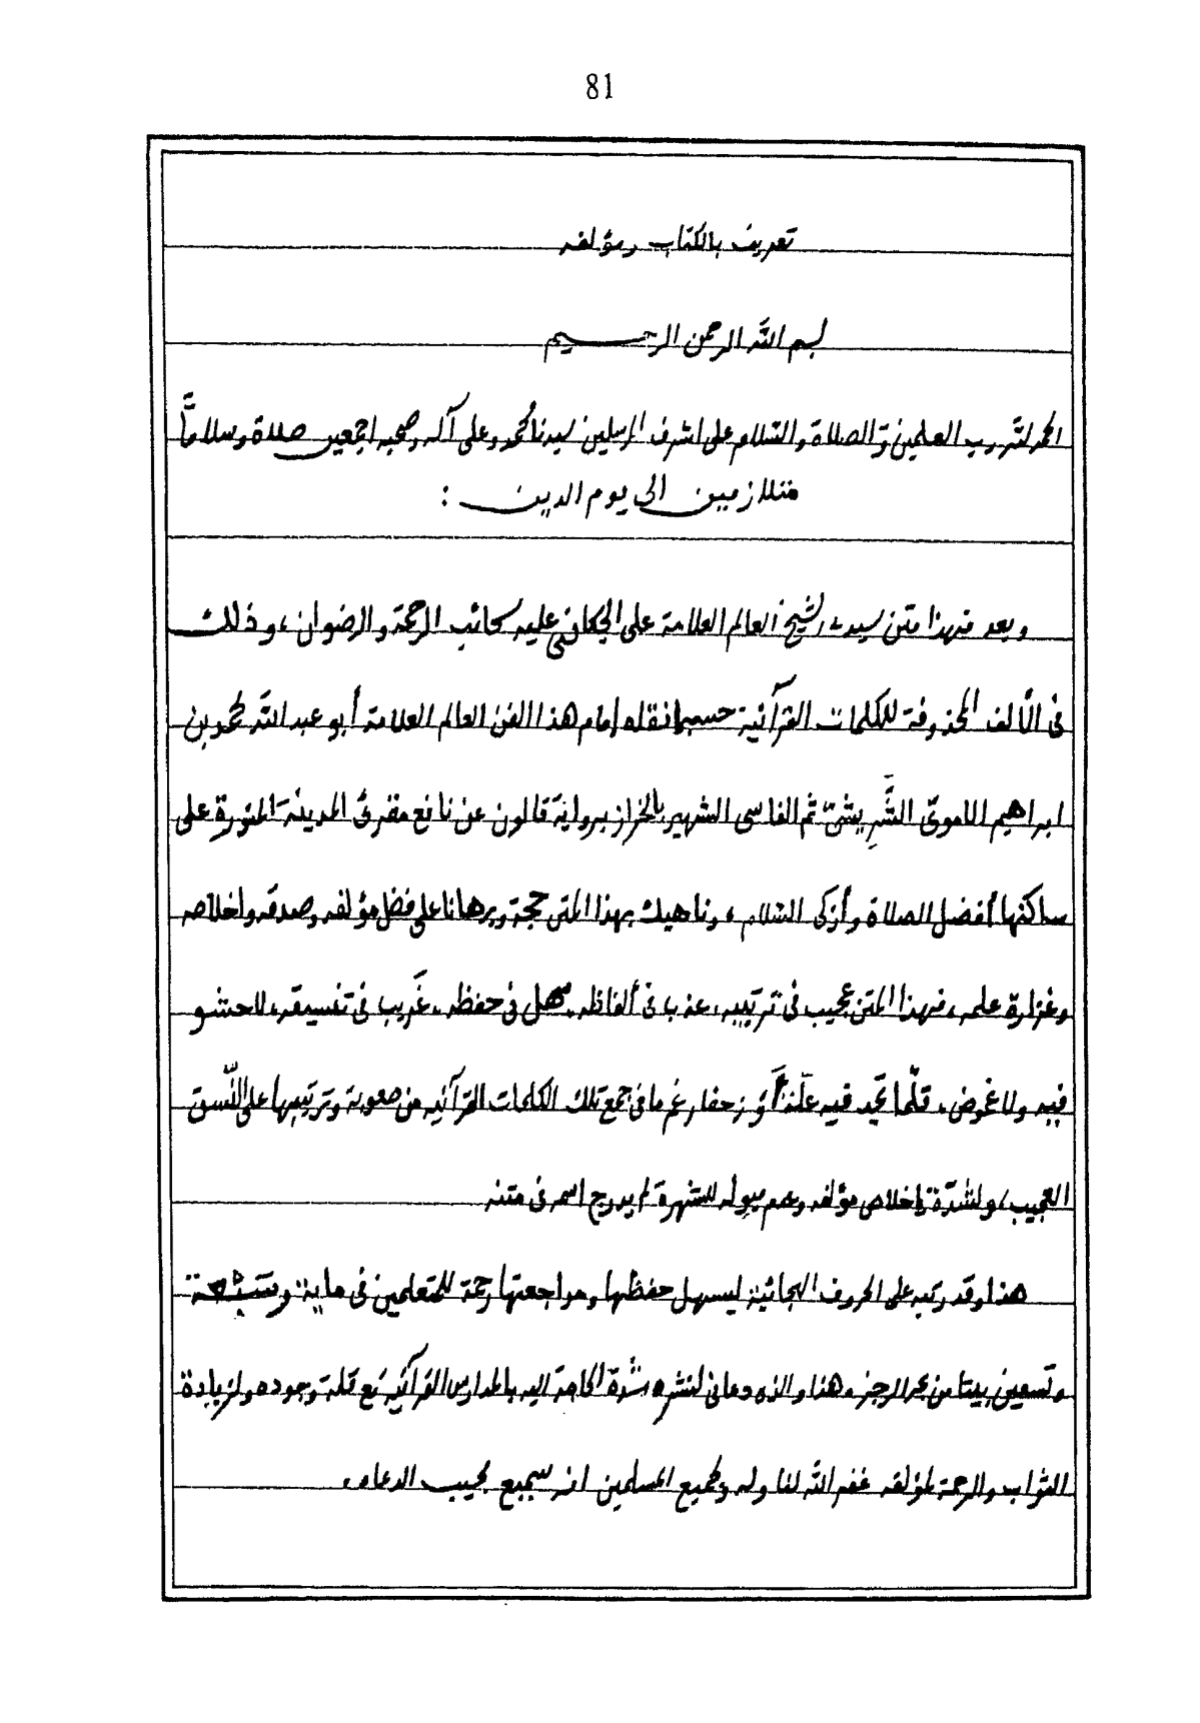 81
تعريف بالكتاب ومؤلفه
بسم الله الرحمن الرحيم
الحمد لله رب العلمين وَالصلاة والسّلام على اشرف المرسلين سيدنا محمد وعلى آله وصحبه اجمعين صلاة وسلامًا
متلازمين الى يوم الدين :
وبعد فهذا متن سيدى الشيخ العالم العلامة على الجكانى عليه سحائب الرحمة والرضوان، وذلك
فى الألف المحذوفة للكلمات القرآنية حسبما نقله إمام هذا الفن العالم العلامة أبو عبد الله محمد بن
ابراهيم الاموىّ الشَّرِيشىّ ثم الفاسى الشهير بالخراز برواية قالون عن نافع مقرئ المدينة المنورة على
ساكنها أفضل الصلاة وأزكى السّلام، وناهيك بهذا المتن حجة وبرهانا على فضل مؤلفه وصدقه واخلاصه
وغزارة علمه، فهذا المتن عجيب فى ترتيبه، عذب فى ألفاظه، سهل فى حفظه، غَريب فى تنسيقه، لا حشو
فيه ولا غموض، قلّما تجد فيه علّة أو زحفا رغم ما فى جمع تلك الكلمات القرآنيه من صعوبة وترتيبها على النّسق
العجيب، ولشدّة إخلاص مؤلفه وعدم ميوله للشهرة لم يدرج اسمه فى متنه
هذا وقد رتبه على الحروف الهجائية ليسهل حفظها ومراجعتها رحمة للمتعلمين فى ماية وتسعة
وتسعين بيتا من بحر الرجز، هذا والذى دعانى لنشره شدّة الحاجة اليه بالمدارس القرآنيه مع قلة وجوده ولزيادة
الثواب والرحمة لمؤلفه غفر الله لنا وله ولجميع المسلمين انه سميع مجيب الدعاء،